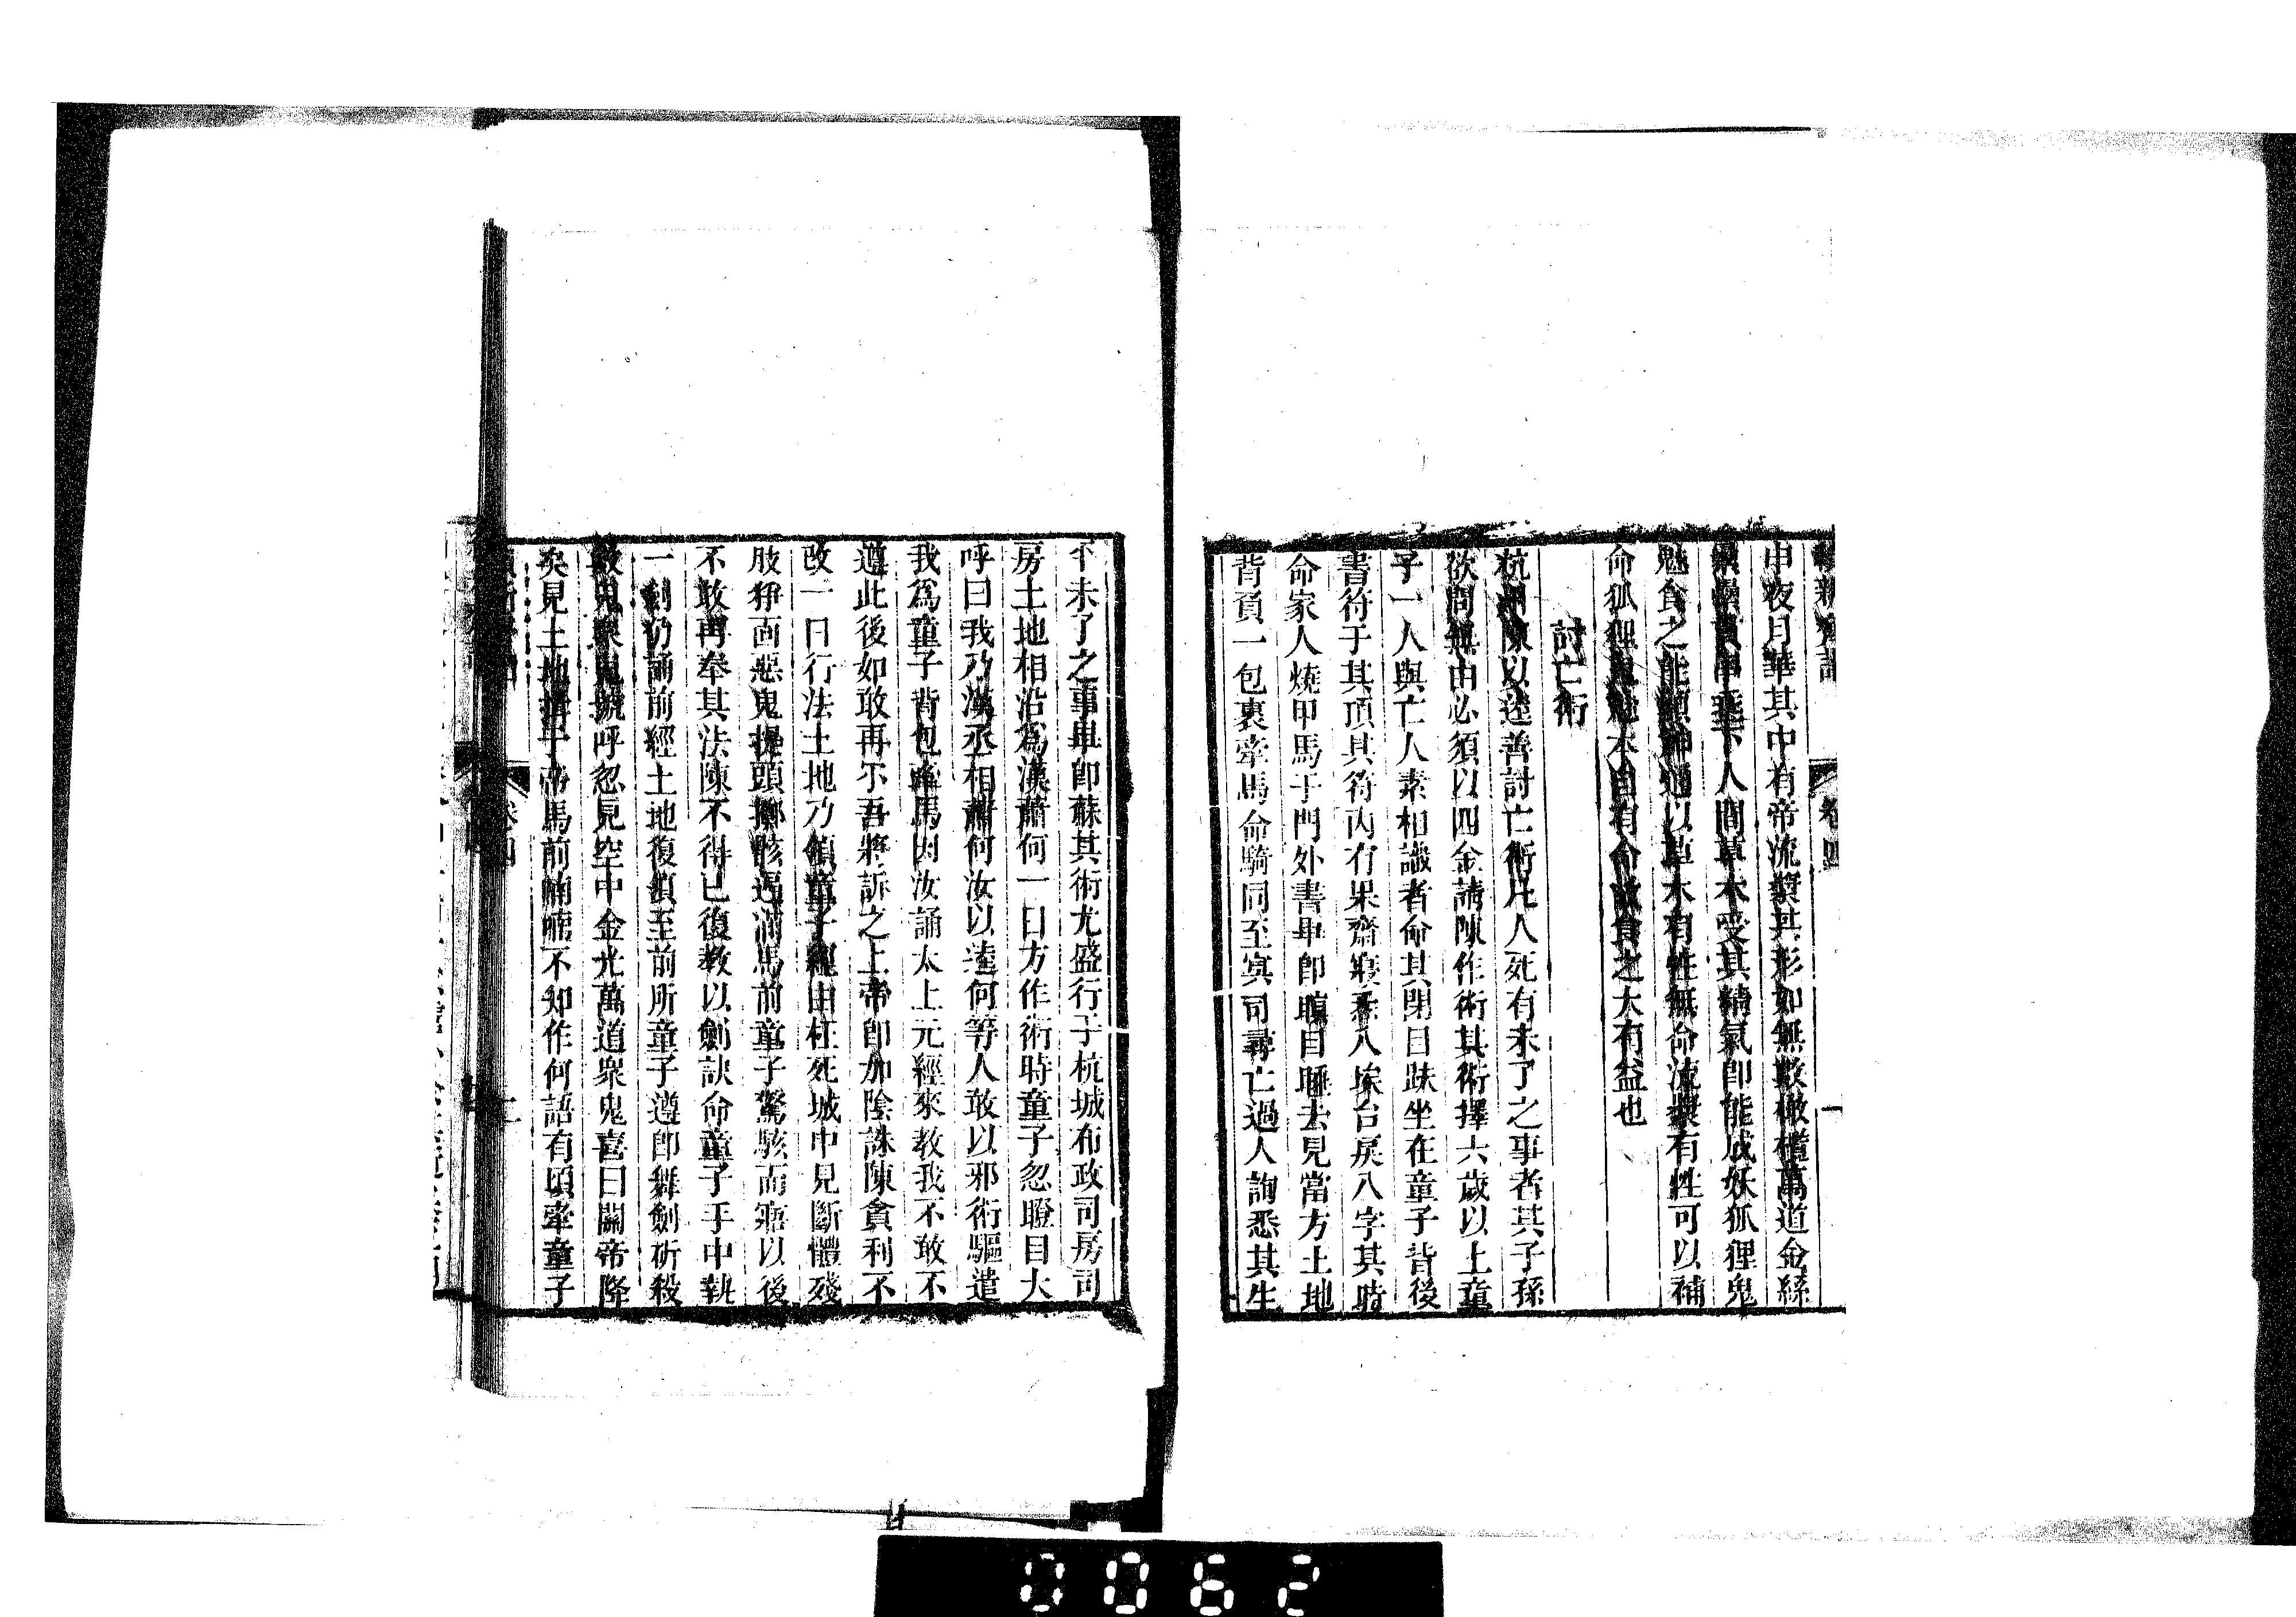 續新齊諧
卷四
申夜月華其中有帝流漿其形如無數橄欖萬道金絲
纍纍貫串垂下人間草木受其精氣即能成妖狐狸鬼
魅食之能顯神通以草木有性無命流漿有性可以補
命狐狸鬼魅本自有命故食之大有益也
討亡術
杭州陳以逵善討亡術凡人死有未了之事者其子孫
欲問無由必須以四金請陳作術其術擇六歲以上童
子一人與亡人素相識者命其閉目趺坐在童子背後
書符于其頂其符內有果齋寢炁八埃台戾八字其時
命家人燒甲馬于門外書畢即瞑目睡去見當方土地
背負一包裹牽馬命騎同至冥司尋亡過人詢悉其生
不未了之事畢即蘇其術尤盛行于杭城布政司房司
房土地相沿為漢蕭何一日方作術時童子忽瞪目大
呼曰我乃漢丞相蕭何汝以逵何等人敢以邪術驅遣
我爲童子背包牽馬因汝誦太上元經來教我不敢不
遵此後如敢再尔吾將訴之上帝即加陰誅陳貪利不
改一日行法土地乃領童子經由枉死城中見斷體殘
肢猙面惡鬼提頭擲骸遏滿馬前童子驚駭而寤以後
不敢再奉其法陳不得已復教以劍訣命童子手中執
一劍仍誦前經土地復領至前所童子遵即舞劍斫殺
數鬼衆鬼號呼忽見空中金光萬道衆鬼喜曰關帝降
矣見土地攔于帝馬前喃喃不知作何語有頃牽童子
卷四
0062